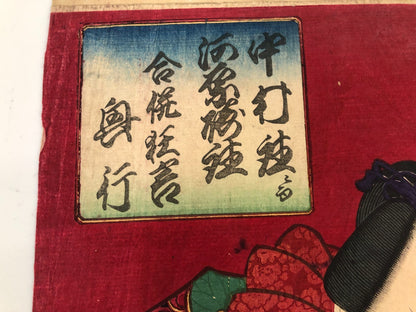 中村座
河原崎座
合併狂言
興行